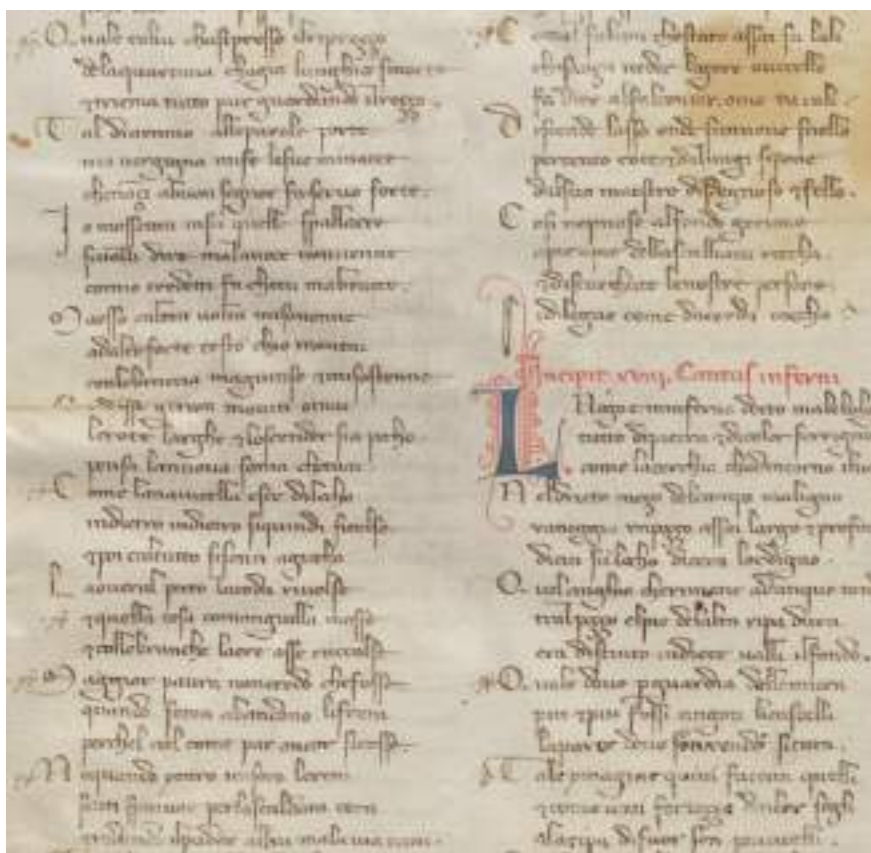 Quale colui chasipresso ilriprezzo
delaquartana chagia lunghie smorte
& triema tutto pur guardando il rezzo
Tal diuenni alleparole porte
ma uergogna mise lesue minacce
chenanci abuon segnor faseruo forte
I massettai insu quelle spallacce
siuolli dire malauoce nonuenne
comio credetti fa chetu mabbracce
Maesso altra uolta misouenne
adalto forte tosto chio montai
conlebraccia mauinse & misostenne
& disse gerion mouiti omai
lerote larghe & loscender sia pocho
pensa lanuoua soma chetuai
Come lanauicella esce dilocho
indietro indietro siquindi sitolse
& poi caltutto sisenti agiocho
Louera il petto lacoda riuolse
& quella tesa comanguilla mosse
& collebranche laere asse raccolse
Maggior paura noncredo chefosse
quando feton abandono lifreni
perchel ciel come pare ancor sicosse
Ne quando ycaro misero lereni
senti spennar perlascaldata cera
gridando ilpadre allui mala uia tieni
Come falcon chestato assai su lali
chesanza ueder logoro o uccello
fa dire alfalconier ome tu cali
Discende lasso onde simuoue snello
percento rote & dalungi sipone
dalsuo maestro disdegnoso & fello
Cosi nepuose alfondo gerione
apie apie dellastagliata roccha
& discarchate lenostre persone
sidileguo come dacorda coccha
Incipit xviij. Cantus inferni
Luogo e ininferno detto malebolge
tutto dipietra & dicolor ferrigno
come lacerchia chedintorno iluolge
Nel dritto mezo delcampo maligno
uaneggia unpozzo assai largo & profondo
dicui suolocho dicera lordigno
Quel cinghio cherimane adunque tondo
tralpozzo elpie delalta ripa dura
& a distinto indiece ualli ilfondo
Quale doue perguardia dellemura
piu & piu fossi cingon licastelli
laparte doue son rende sicura
Tale ymagine quiui facean quelli
& come atai fortezze dailor sogli
alaripa difuor son ponticelli